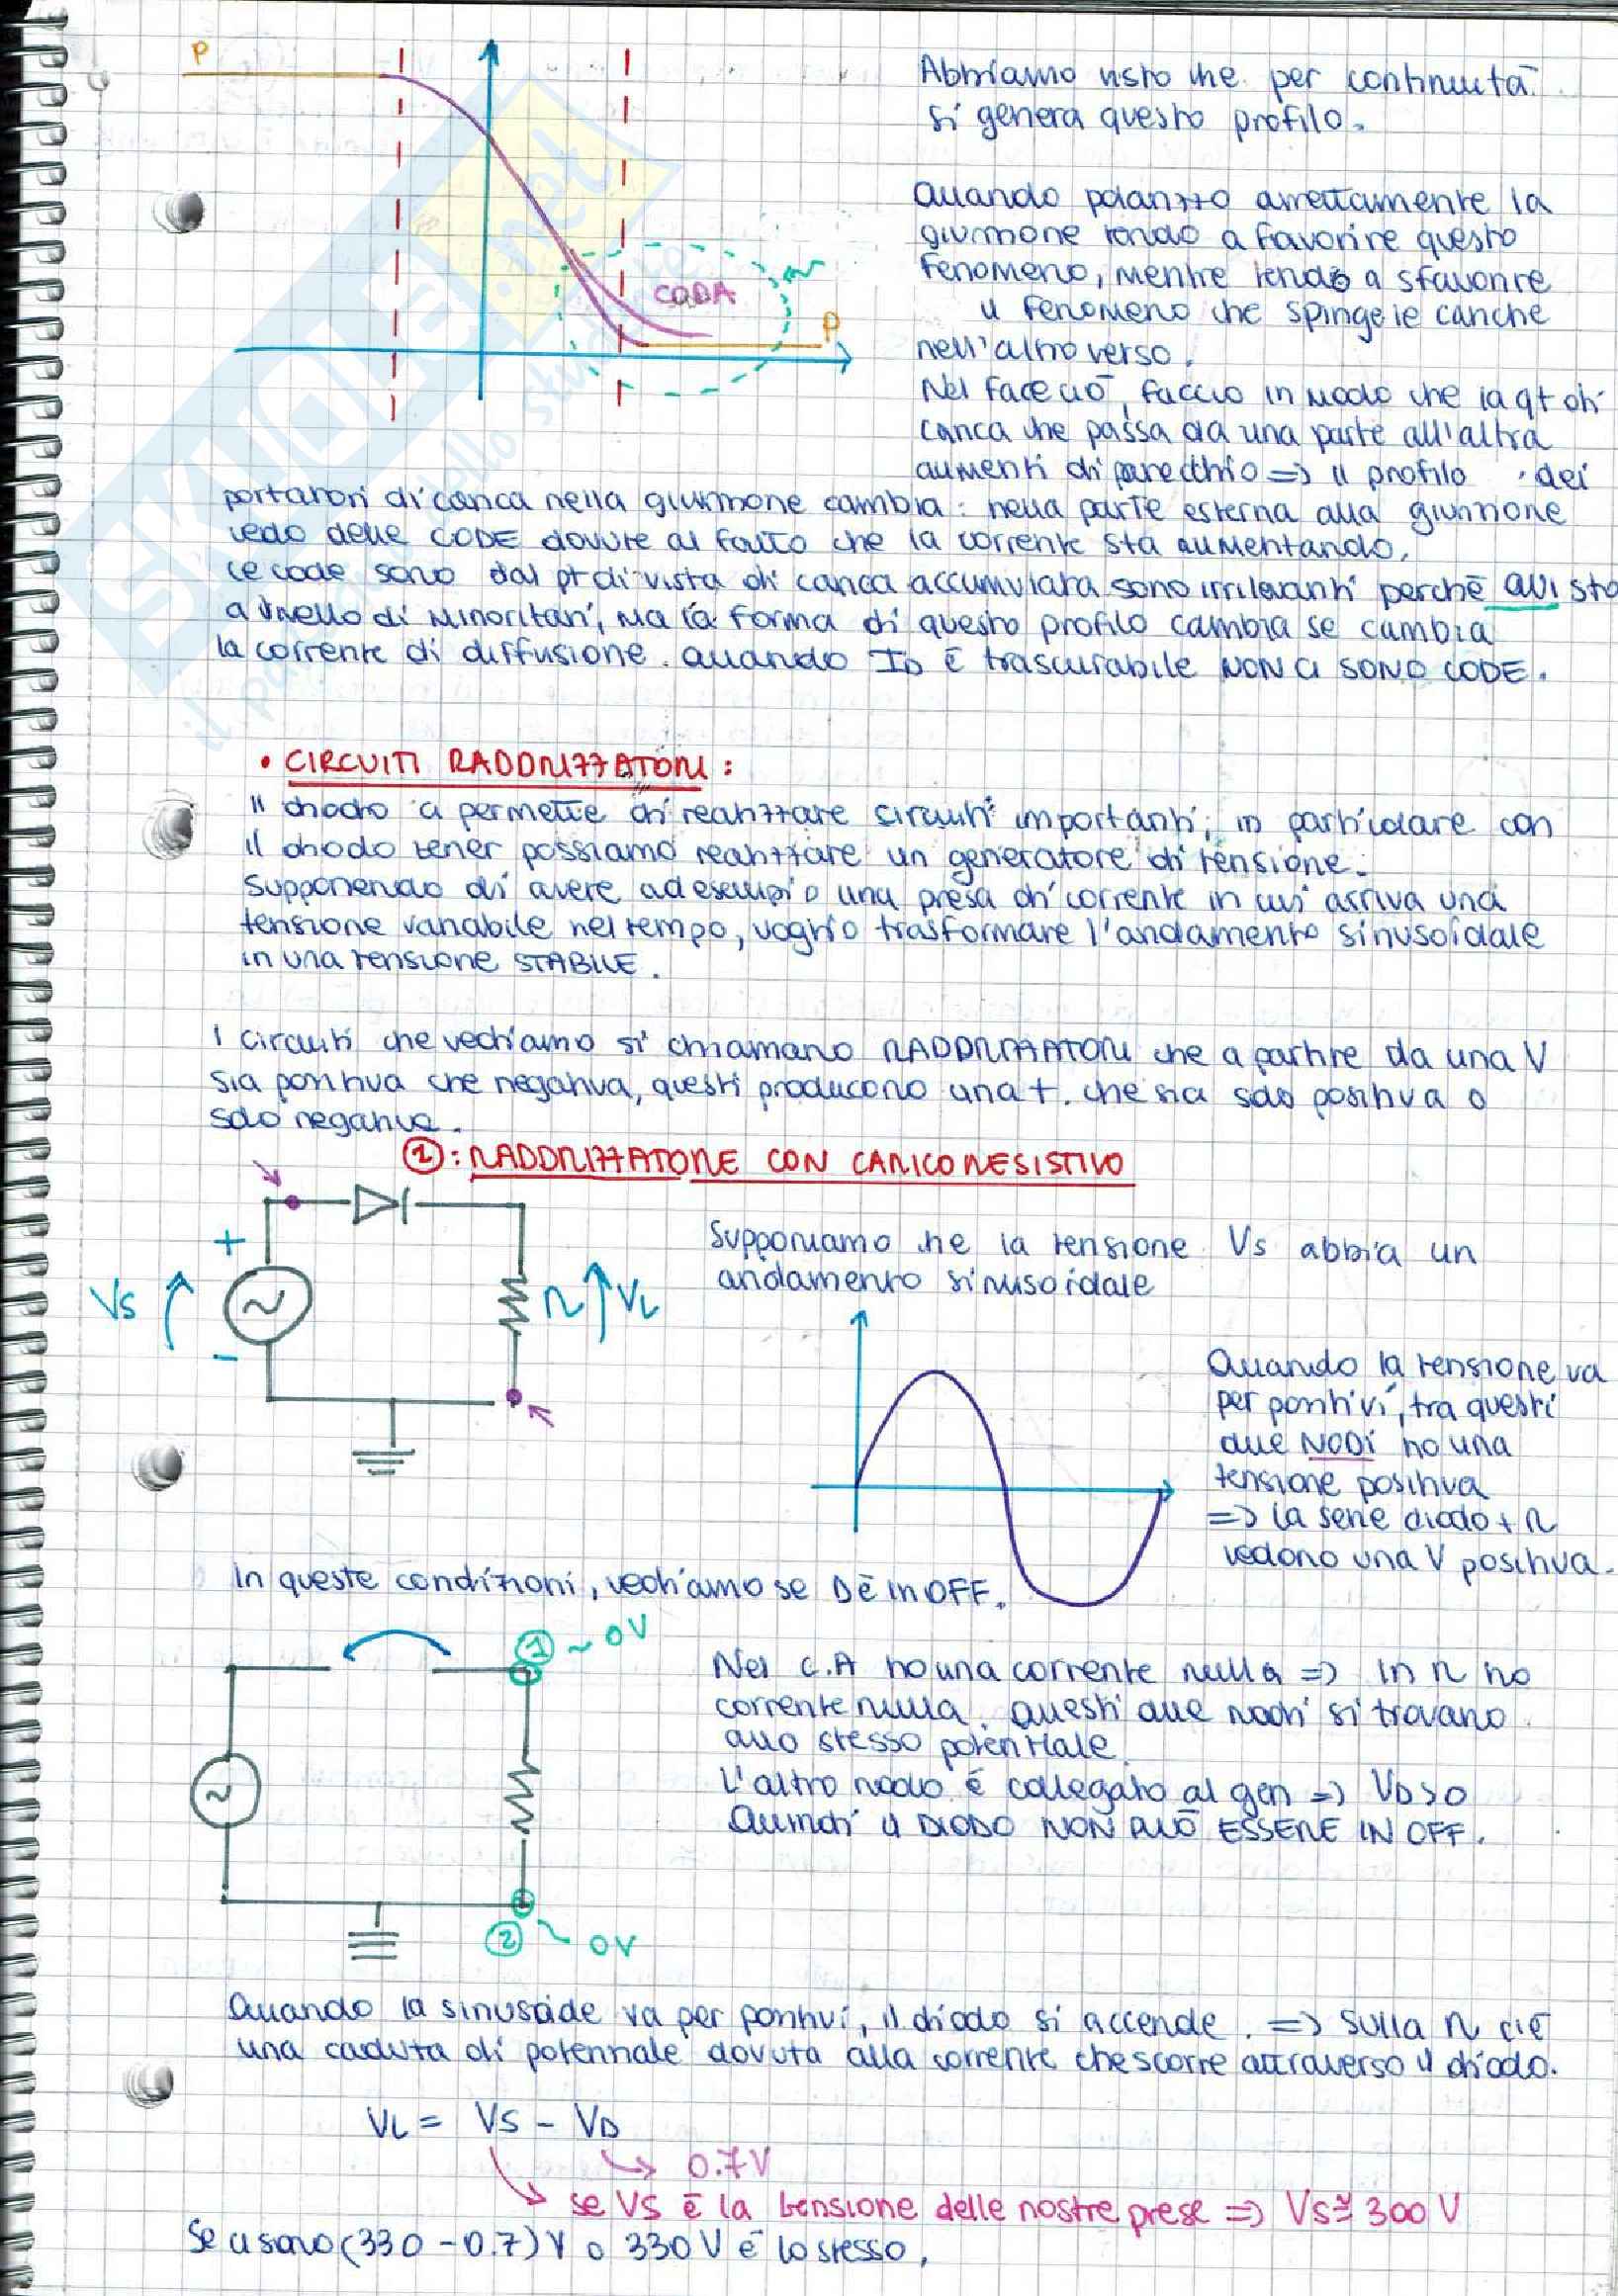 P
Abbiamo visto che per continuità
si genera questo profilo.
Quando polarizzo direttamente la
giunzione tendo a favorire questo
fenomeno, mentre tendo a sfavorire
CODA
il fenomeno che spinge le cariche
P
nell'altro verso.
Nel fare ciò, faccio in modo che la qt di
carica che passa da una parte all'altra
aumenti di parecchio => il profilo dei
portatori di carica nella giunzione cambia: nella parte esterna alla giunzione
vedo delle CODE dovute al fatto che la corrente sta aumentando.
Le code sono dal pt di vista di carica accumulata sono irrilevanti perchè QUI sto
a livello di minoritari, ma la forma di questo profilo cambia se cambia
la corrente di diffusione. Quando ID è trascurabile NON CI SONO CODE.
• CIRCUITI RADDRIZZATORI:
Il diodo ci permette di realizzare circuiti importanti, in particolare con
il diodo zener possiamo realizzare un generatore di tensione.
Supponendo di avere ad esempio una presa di corrente in cui arriva una
tensione variabile nel tempo, voglio trasformare l'andamento sinusoidale
in una tensione STABILE.
I circuiti che vediamo si chiamano RADDRIZZATORI che a partire da una V
sia positiva che negativa, questi producono una t. che sia solo positiva o
solo negativa.
①: RADDRIZZATORE CON CARICO RESISTIVO
Supponiamo che la tensione Vs abbia un
andamento sinusoidale
+
Vs
~
R
VL
-
Quando la tensione va
per positivi, tra questi
due NODI ho una
tensione positiva
=> la serie diodo + R
vedono una V positiva.
In queste condizioni, vediamo se D è in OFF.
① ~ 0V
Nel C.A ho una corrente nulla => in R ho
corrente nulla. Questi due nodi si trovano
allo stesso potenziale.
L'altro nodo è collegato al gen => VD>0
Quindi il DIODO NON PUÒ ESSERE IN OFF.
~
② ~ 0V
Quando la sinusoide va per positivi, il diodo si accende. => sulla R c'è
una caduta di potenziale dovuta alla corrente che scorre attraverso il diodo.
VL = VS - VD
0.7V
se VS è la tensione delle nostre prese => VS ≅ 300 V
Se ci sono (330 - 0.7) V o 330 V è lo stesso.
SKUOLA.net
il paradiso dello studente